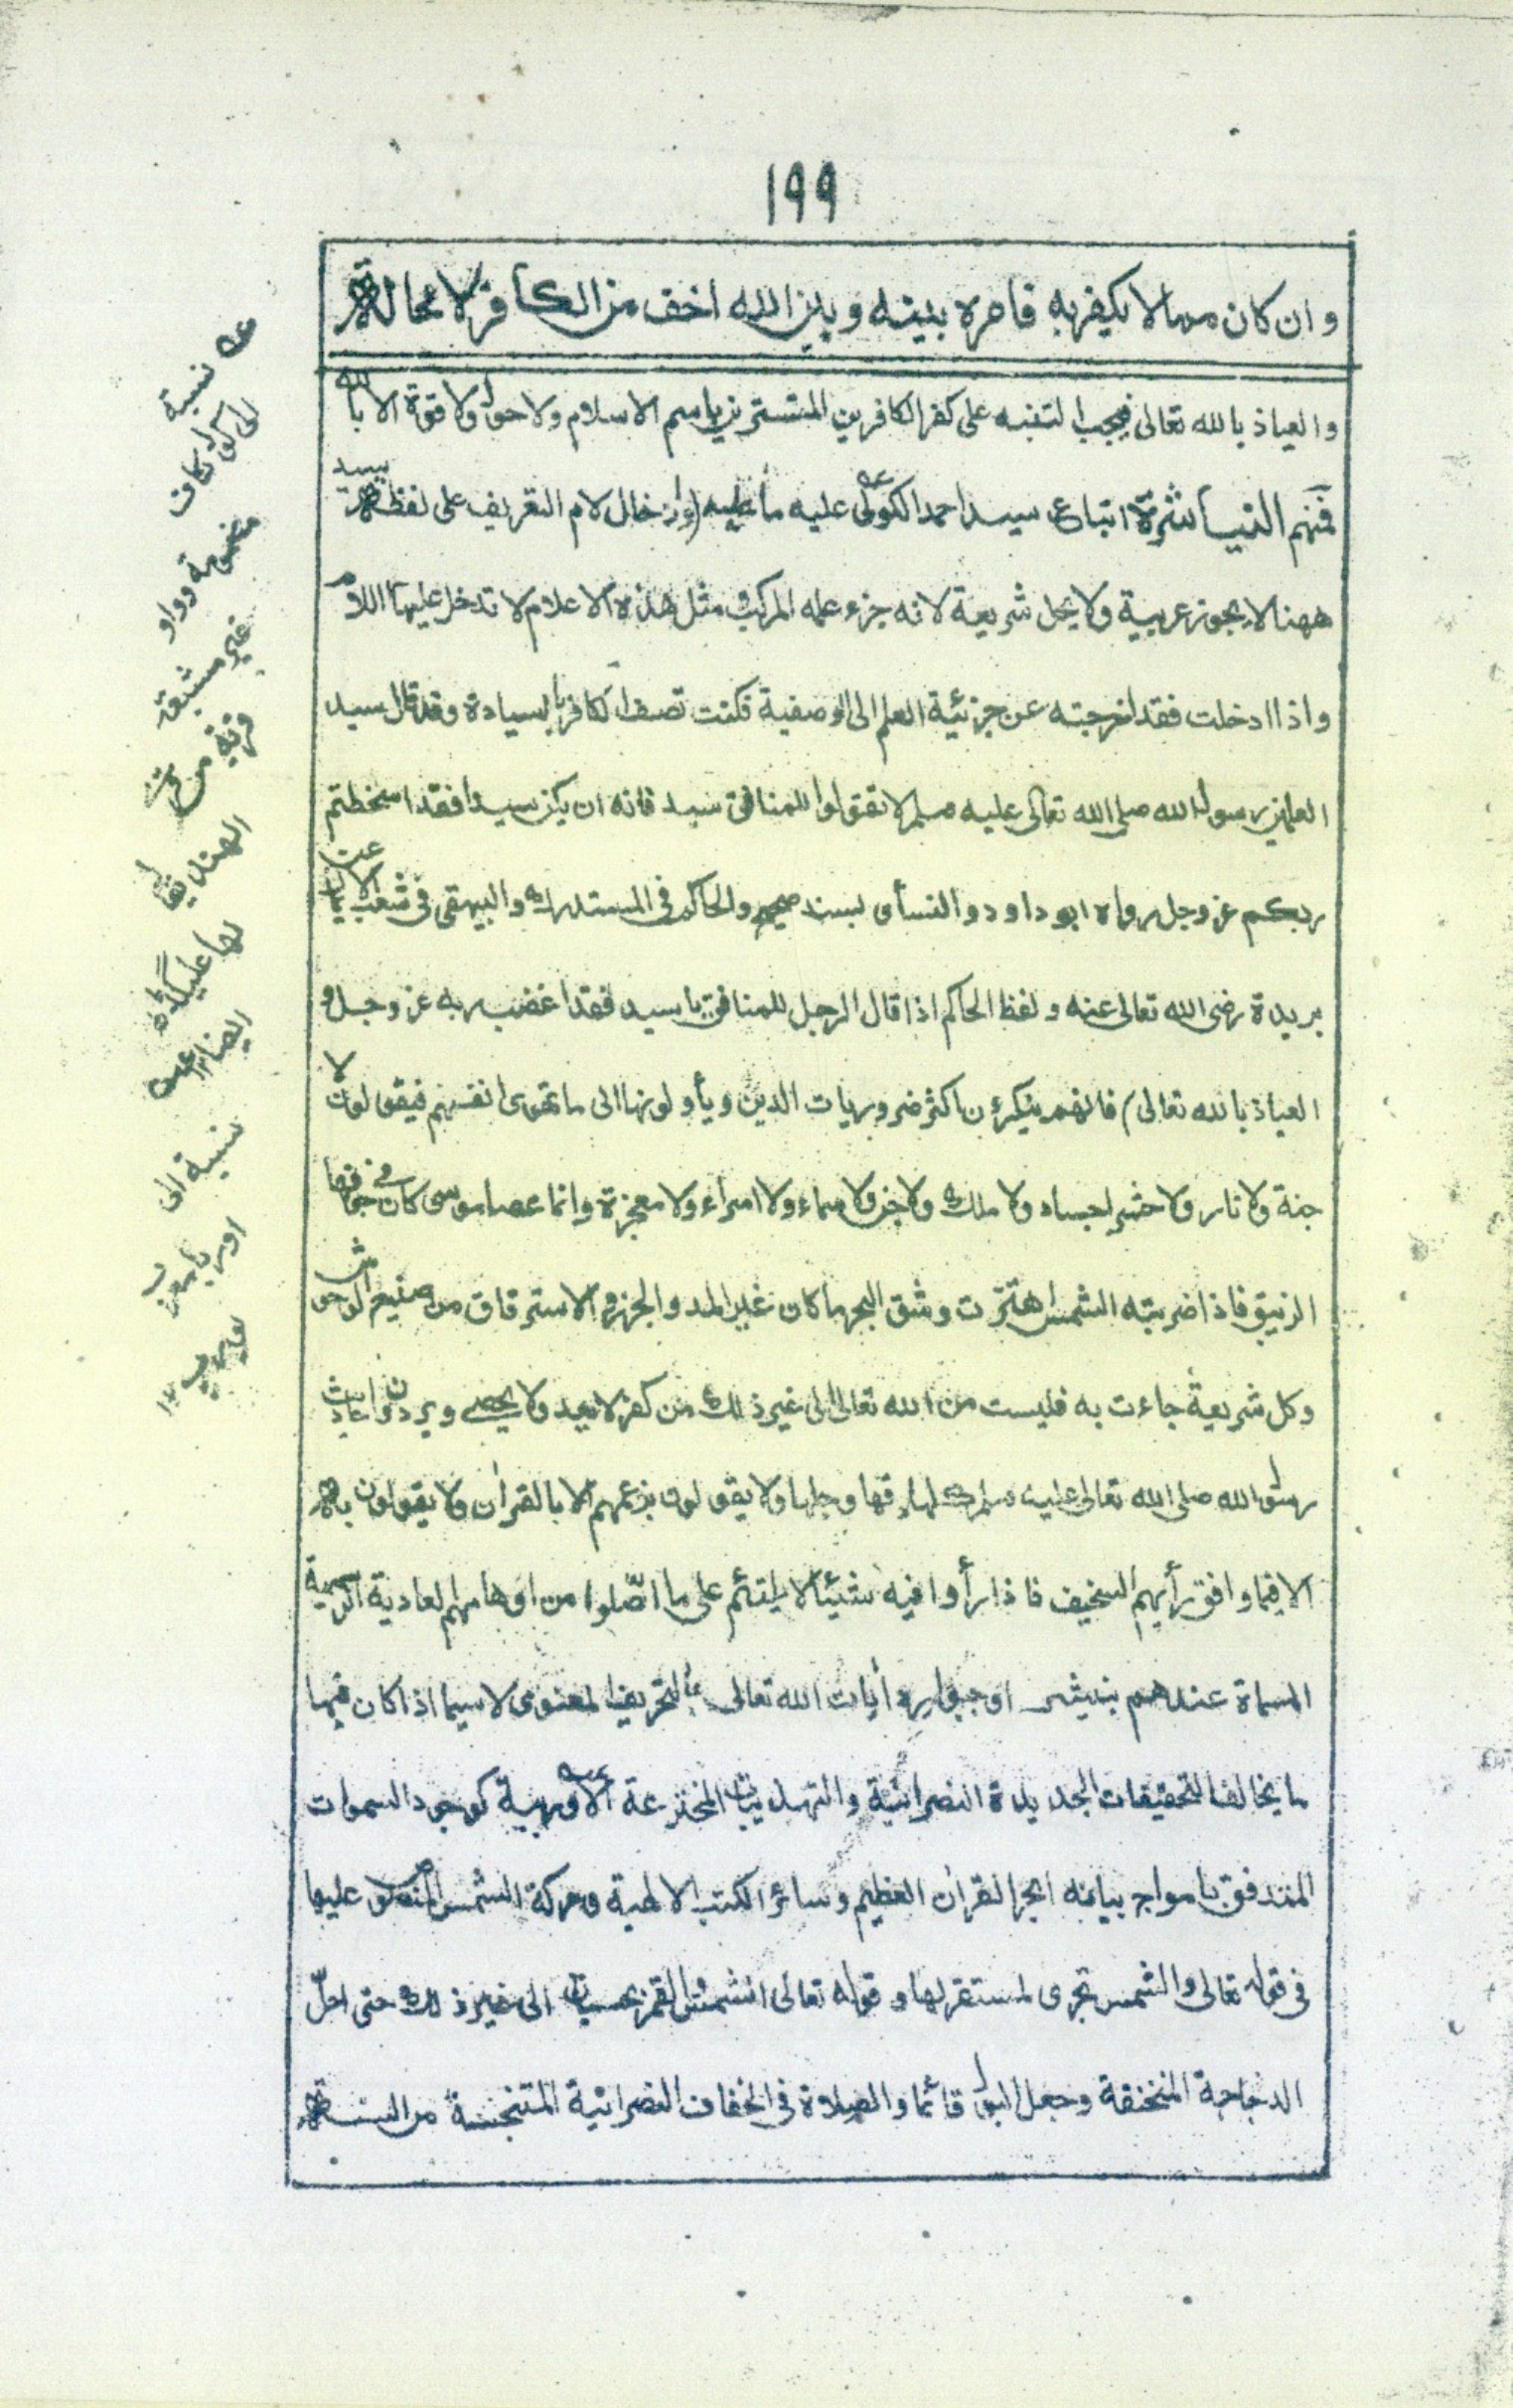 ١٩٩
وان كان مما لا يكفر به فامره بينه وبين الله اخف من الكافر لا محالة ١٢
والعياذ بالله تعالى فيجب التنبه على كفر الكافرين المتسترين باسم الاسلام ولا حول ولا قوة الا بالله
فمنهم النياشرة اتباع سيد احمد الكولى عليه ما عليه (وادخال لام التعريف على لفظة سيد
ههنا لا يجوز عربية ولا يحل شريعة لانه جزء علمه المركب مثل هذه الاعلام لا تدخل عليها اللام
واذا ادخلت فقد اخرجته عن جزئية العلم الى الوصفية فكنت تصف الكافر بالسيادة وقد قال سيد
العلمين رسول الله صلى الله تعالى عليه وسلم لا تقولوا للمنافق سيد فانه ان يكن سيدا فقد اسخطتم
ربكم عز وجل رواه ابو داود والنسأى بسند صحيح والحاكم فى المستدرك والبيهقى فى شعب الايمان عن
بريدة رضى الله تعالى عنه ولفظ الحاكم اذا قال الرجل للمنافق يا سيد فقد اغضب ربه عز وجل و
العياذ بالله تعالى) فانهم ينكرون اكثر ضروريات الدين ويأولونها الى ما تهوى انفسهم فيقولون لا
جنة ولا نار ولا حشر اجساد ولا ملك ولا جن ولا سماء ولا اسراء ولا معجزة وانما عصا موسى كان فى جوفها
الزيبق فاذا ضربته الشمس اهتزت وشق البحر ما كان غير المد والجزر والاسترقاق من صنيع الوحوش
وكل شريعة جاءت به فليست من الله تعالى الى غير ذلك من كفر لا يعد ولا يحصى ويردون احاديث
رسول الله صلى الله تعالى عليه وسلم كلها دقها وجلها ولا يقولون بزعمهم الا بالقران ولا يقولون به
الا فيما وافق رأيهم السخيف فاذا رأوا فيه شيئا لا يلتئم على ما اصّلوا من اوهامهم العادية الرسمية
المسماة عندهم بنيشر اوجبوا رد أيات الله تعالى بالتحريف المعنوى لا سيما اذا كان فيها
ما يخالف التحقيقات الجديدة النصرانية والتهذيبات المخترعة الاوربية كوجود السموات
المتدفق بامواج بيانه ابحر القران العظيم وسائر الكتب الالهية وحركة الشمس المنصوص عليها
فى قوله تعالى والشمس تجرى لمستقر لها وقوله تعالى الشمس والقمر بحسبان الى غير ذلك حتى احلّ
الدجاجة المنخنقة وجعل البول قائما والصلاة فى الخفاف النصرانية المتنجسة من السنة
عه نسبة
الى كول بكاف
مضمومة وواو
غير مشبعة
قرية من قرى
الهند يقال
لها عليگڑه
ايضا ١٢
عه
نسبة الى
اوربا معرب
يورپ ١٢